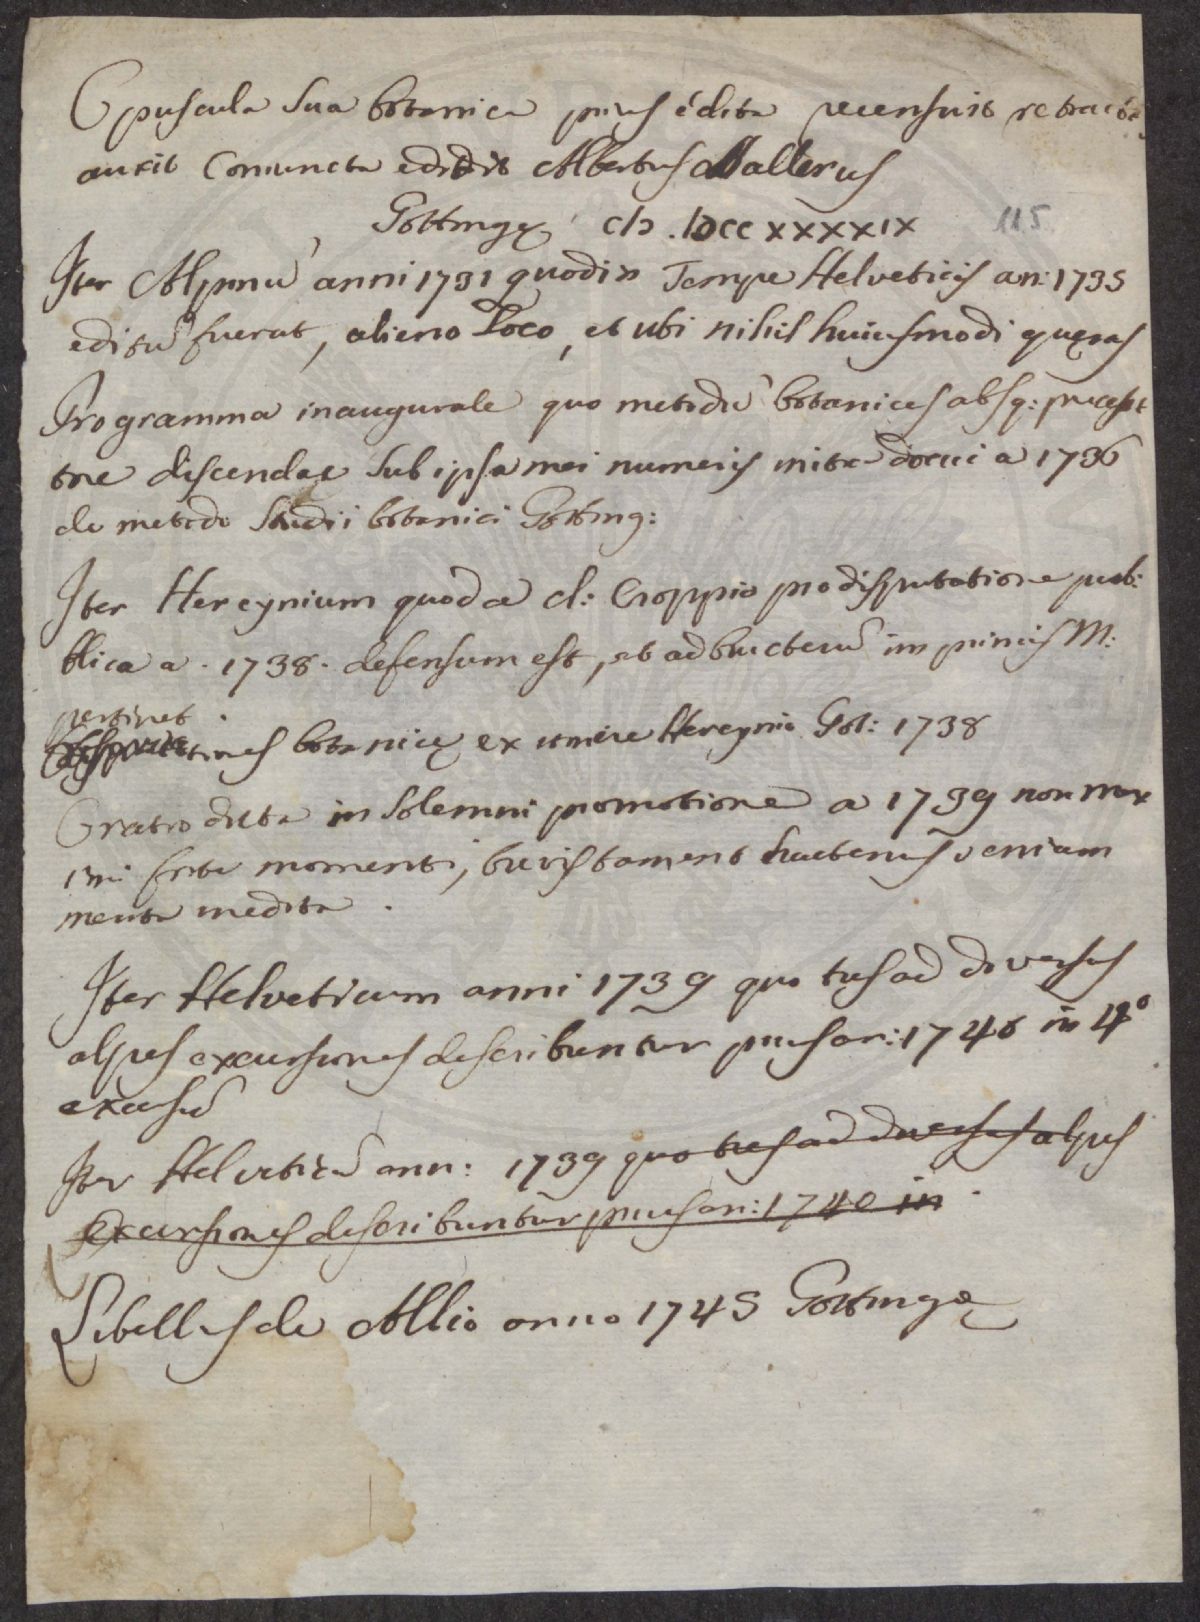 Opuscula sua botanica prius édita recensuit retracta
auxit coniuncta edidit Albertus Hallerus
Gottingę cIↃ.IↃCCXXXXIX 115
Iter Alpinũ anni 1731 quod in Tempe Helveticis an: 1735
editũ fuerat, alieno Loco, et ubi nihil huiusmodi quęras
Programma inaugurale quo metodũ botanices absq: precept
tore discendae sub ipsa mei numeris initia docui a 1736
de metodo Studii botanici Gotting:
Iter Hercynium quod a cl: Croppio pro disputatione pub:
blica a. 1738. defensum est, et ad bructerũ in primis M:
pertinet.
botanicę ex itinere Hercynio Got: 1738
Oratio dicta in solemni promotione a 1739 non max
imi forte momenti, brevis tament hactenus veniam
merita inedita.
Iter Helveticum anni 1739 quo tres ad diversas
alpes excursiones describuntur prius an: 1740 in 4º
excusũ
Iter Helveticũ ann: 1739 quo tres ad diversas alpes
excursiones describuntur prius an: 1740 in.
Libellus de Allio anno 1745 Gottingę